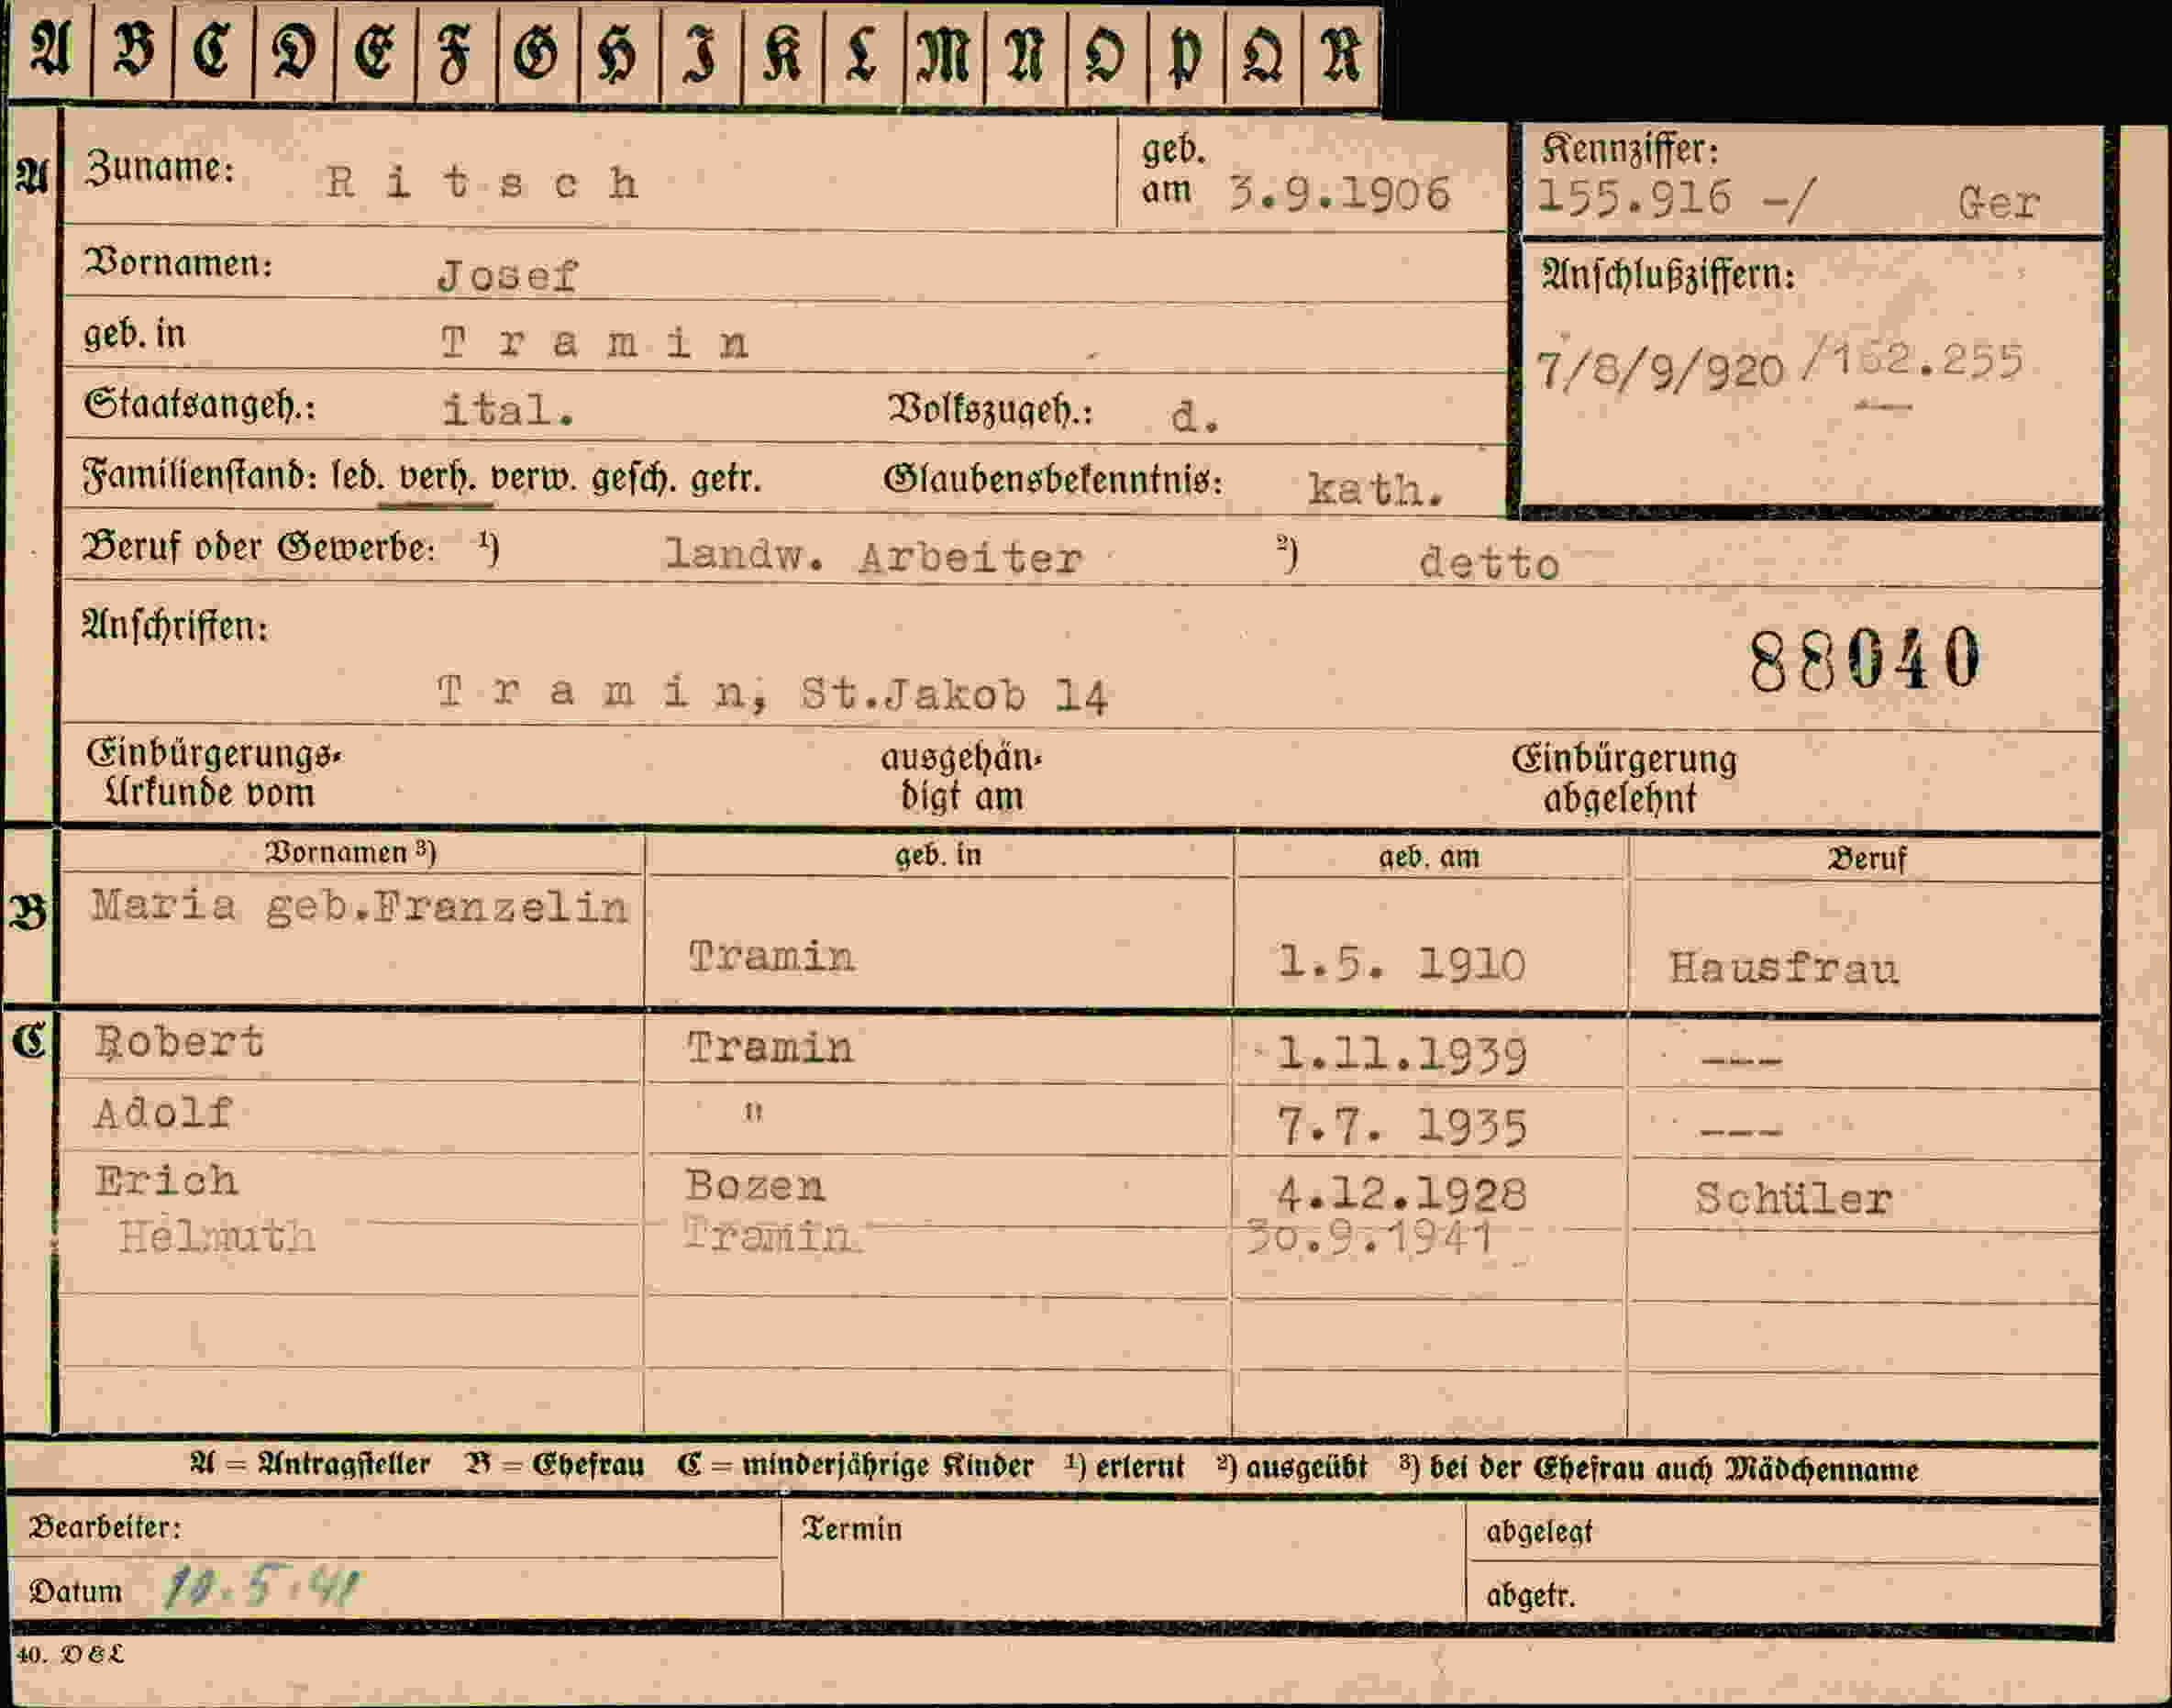 A B C D E F G H I K L M N O P Q R
A Zuname: Ritsch geb. am 3.9.1906 Kennziffer: 155.916 -/ Ger
Vornamen: Josef Anschlußziffern:
geb. in Tramin 7/8/9/920 /162.255
Staatsangeh.: ital. Volkszugeh.: d.
Familienstand: led. verh. verw. gesch. getr. Glaubensbekenntnis: kath.
Beruf oder Gewerbe: ¹) landw. Arbeiter ²) detto
Anschriften: 88040
Tramin, St.Jakob 14
Einbürgerungs- ausgehän- Einbürgerung
Urkunde vom digt am abgelehnt
Vornamen ³) geb. in geb. am Beruf
B Maria geb.Franzelin
Tramin 1.5. 1910 Hausfrau
C Robert Tramin 1.11.1939 ---
Adolf " 7.7. 1935 ---
Erich Bozen 4.12.1928 Schüler
Helmuth Tramin 30.9.1941
A = Antragsteller B = Ehefrau C = minderjährige Kinder ¹) erlernt ²) ausgeübt ³) bei der Ehefrau auch Mädchenname
Bearbeiter: Termin abgelegt
Datum 10.5.41 abgetr.
40. D&L